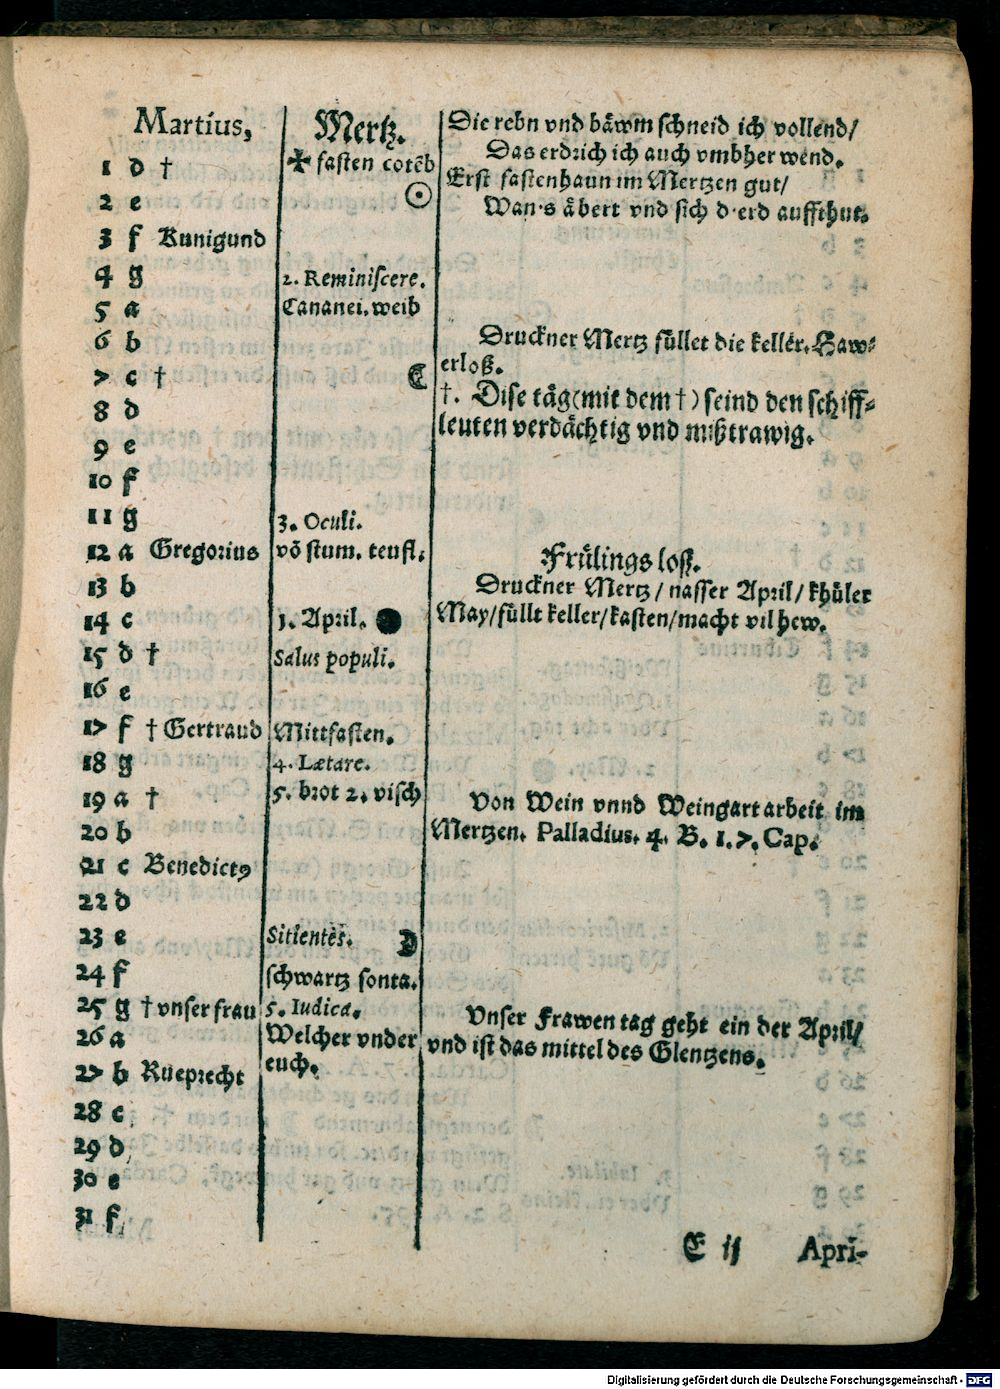 Martius,
1 d †
2 e
3 f Kunigund
4 g
5 a
6 b
7 c †
8 d
9 e
10 f
11 g
12 a Gregorius
13 b
14 c
15 d †
16 e
17 f † Gertraud
18 g
19 a †
20 b
21 c Benedictꝰ
22 d
23 e
24 f
25 g † vnser frau
26 a
27 b Rüeprecht
28 c
29 d
30 e
31 f
Mertz.
✠ fasten cotēb
☉
2. Reminiscere.
Cananei. weib
☾
3. Oculi.
võ stum. teufl.
1. April. ●
Salus populi.
Mittfasten.
4. Lætare.
5. brot 2. visch
Sitientēs. ☽
schwartz sonta.
5. Iudica.
Welcher vnder
euch.
Die rebn vnd bäwm schneid ich vollend/
Das erdrich ich auch vmbher wend.
Erst fastenhaun im Mertzen gut/
Wan's äbert vnd sich d'erd auffthut.
Druckner Mertz füllet die keller. Baw-
erloß.
†. Dise täg (mit dem †) seind den schiff-
leuten verdächtig vnd mißtrawig.
Frülings loß.
Druckner Mertz / nasser April / khüler
May/füllt keller/kasten/macht vil hew.
Von Wein vnnd Weingart arbeit im
Mertzen. Palladius. 4. B. 1. 7. Cap.
Vnser Frawen tag geht ein der April/
vnd ist das mittel des Glentzens.
E ij Apri-
Digitalisierung gefördert durch die Deutsche Forschungsgemeinschaft - DFG